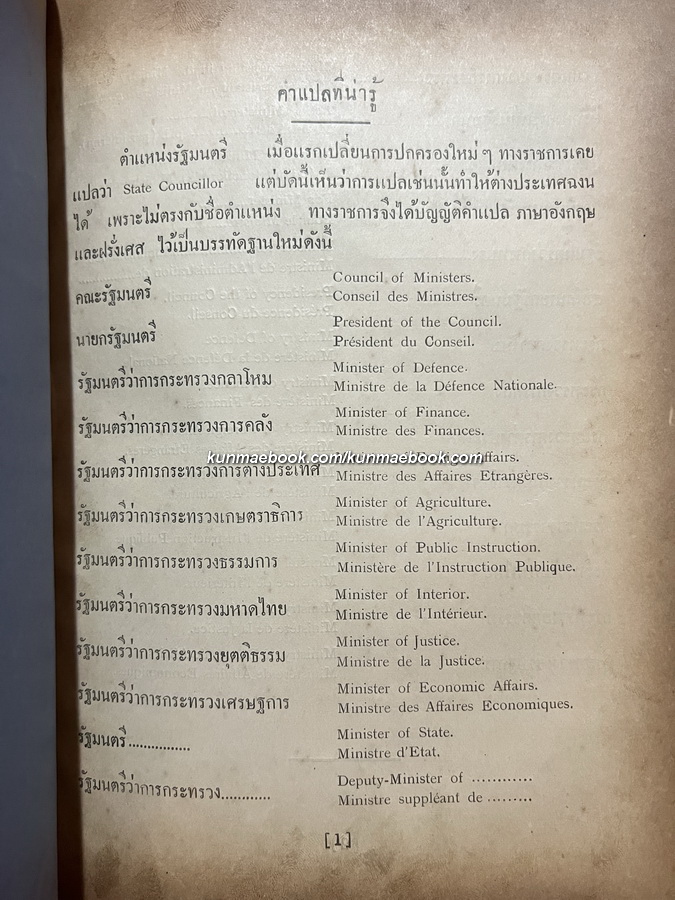 คำแปลที่น่ารู้
ตำแหน่งรัฐมนตรี เมื่อแรกเปลี่ยนการปกครองใหม่ ๆ ทางราชการเคย
แปลว่า State Councillor แต่บัดนี้เห็นว่าการแปลเช่นนั้นทำให้ต่างประเทศฉงน
ได้ เพราะไม่ตรงกับชื่อตำแหน่ง ทางราชการจึงได้บัญญัติคำแปล ภาษาอังกฤษ
และฝรั่งเศส ไว้เป็นบรรทัดฐานใหม่ดังนี้
คณะรัฐมนตรี Council of Ministers.
Conseil des Ministres.
นายกรัฐมนตรี President of the Council.
Président du Conseil.
รัฐมนตรีว่าการกระทรวงกลาโหม Minister of Defence.
Ministre de la Défence Nationale.
รัฐมนตรีว่าการกระทรวงการคลัง Minister of Finance.
Ministre des Finances.
kunmaebook.com/kunmaebook.com
รัฐมนตรีว่าการกระทรวงการต่างประเทศ Affairs.
Ministre des Affaires Etrangères.
รัฐมนตรีว่าการกระทรวงเกษตราธิการ Minister of Agriculture.
Ministre de l'Agriculture.
รัฐมนตรีว่าการกระทรวงธรรมการ Minister of Public Instruction.
Ministère de l'Instruction Publique.
รัฐมนตรีว่าการกระทรวงมหาดไทย Minister of Interior.
Ministre de l'Intérieur.
รัฐมนตรีว่าการกระทรวงยุตติธรรม Minister of Justice.
Ministre de la Justice.
รัฐมนตรีว่าการกระทรวงเศรษฐการ Minister of Economic Affairs.
Ministre des Affaires Economiques.
รัฐมนตรี............... Minister of State.
Ministre d'Etat.
รัฐมนตรีว่าการกระทรวง............ Deputy-Minister of ............
Ministre suppléant de .........
[1]